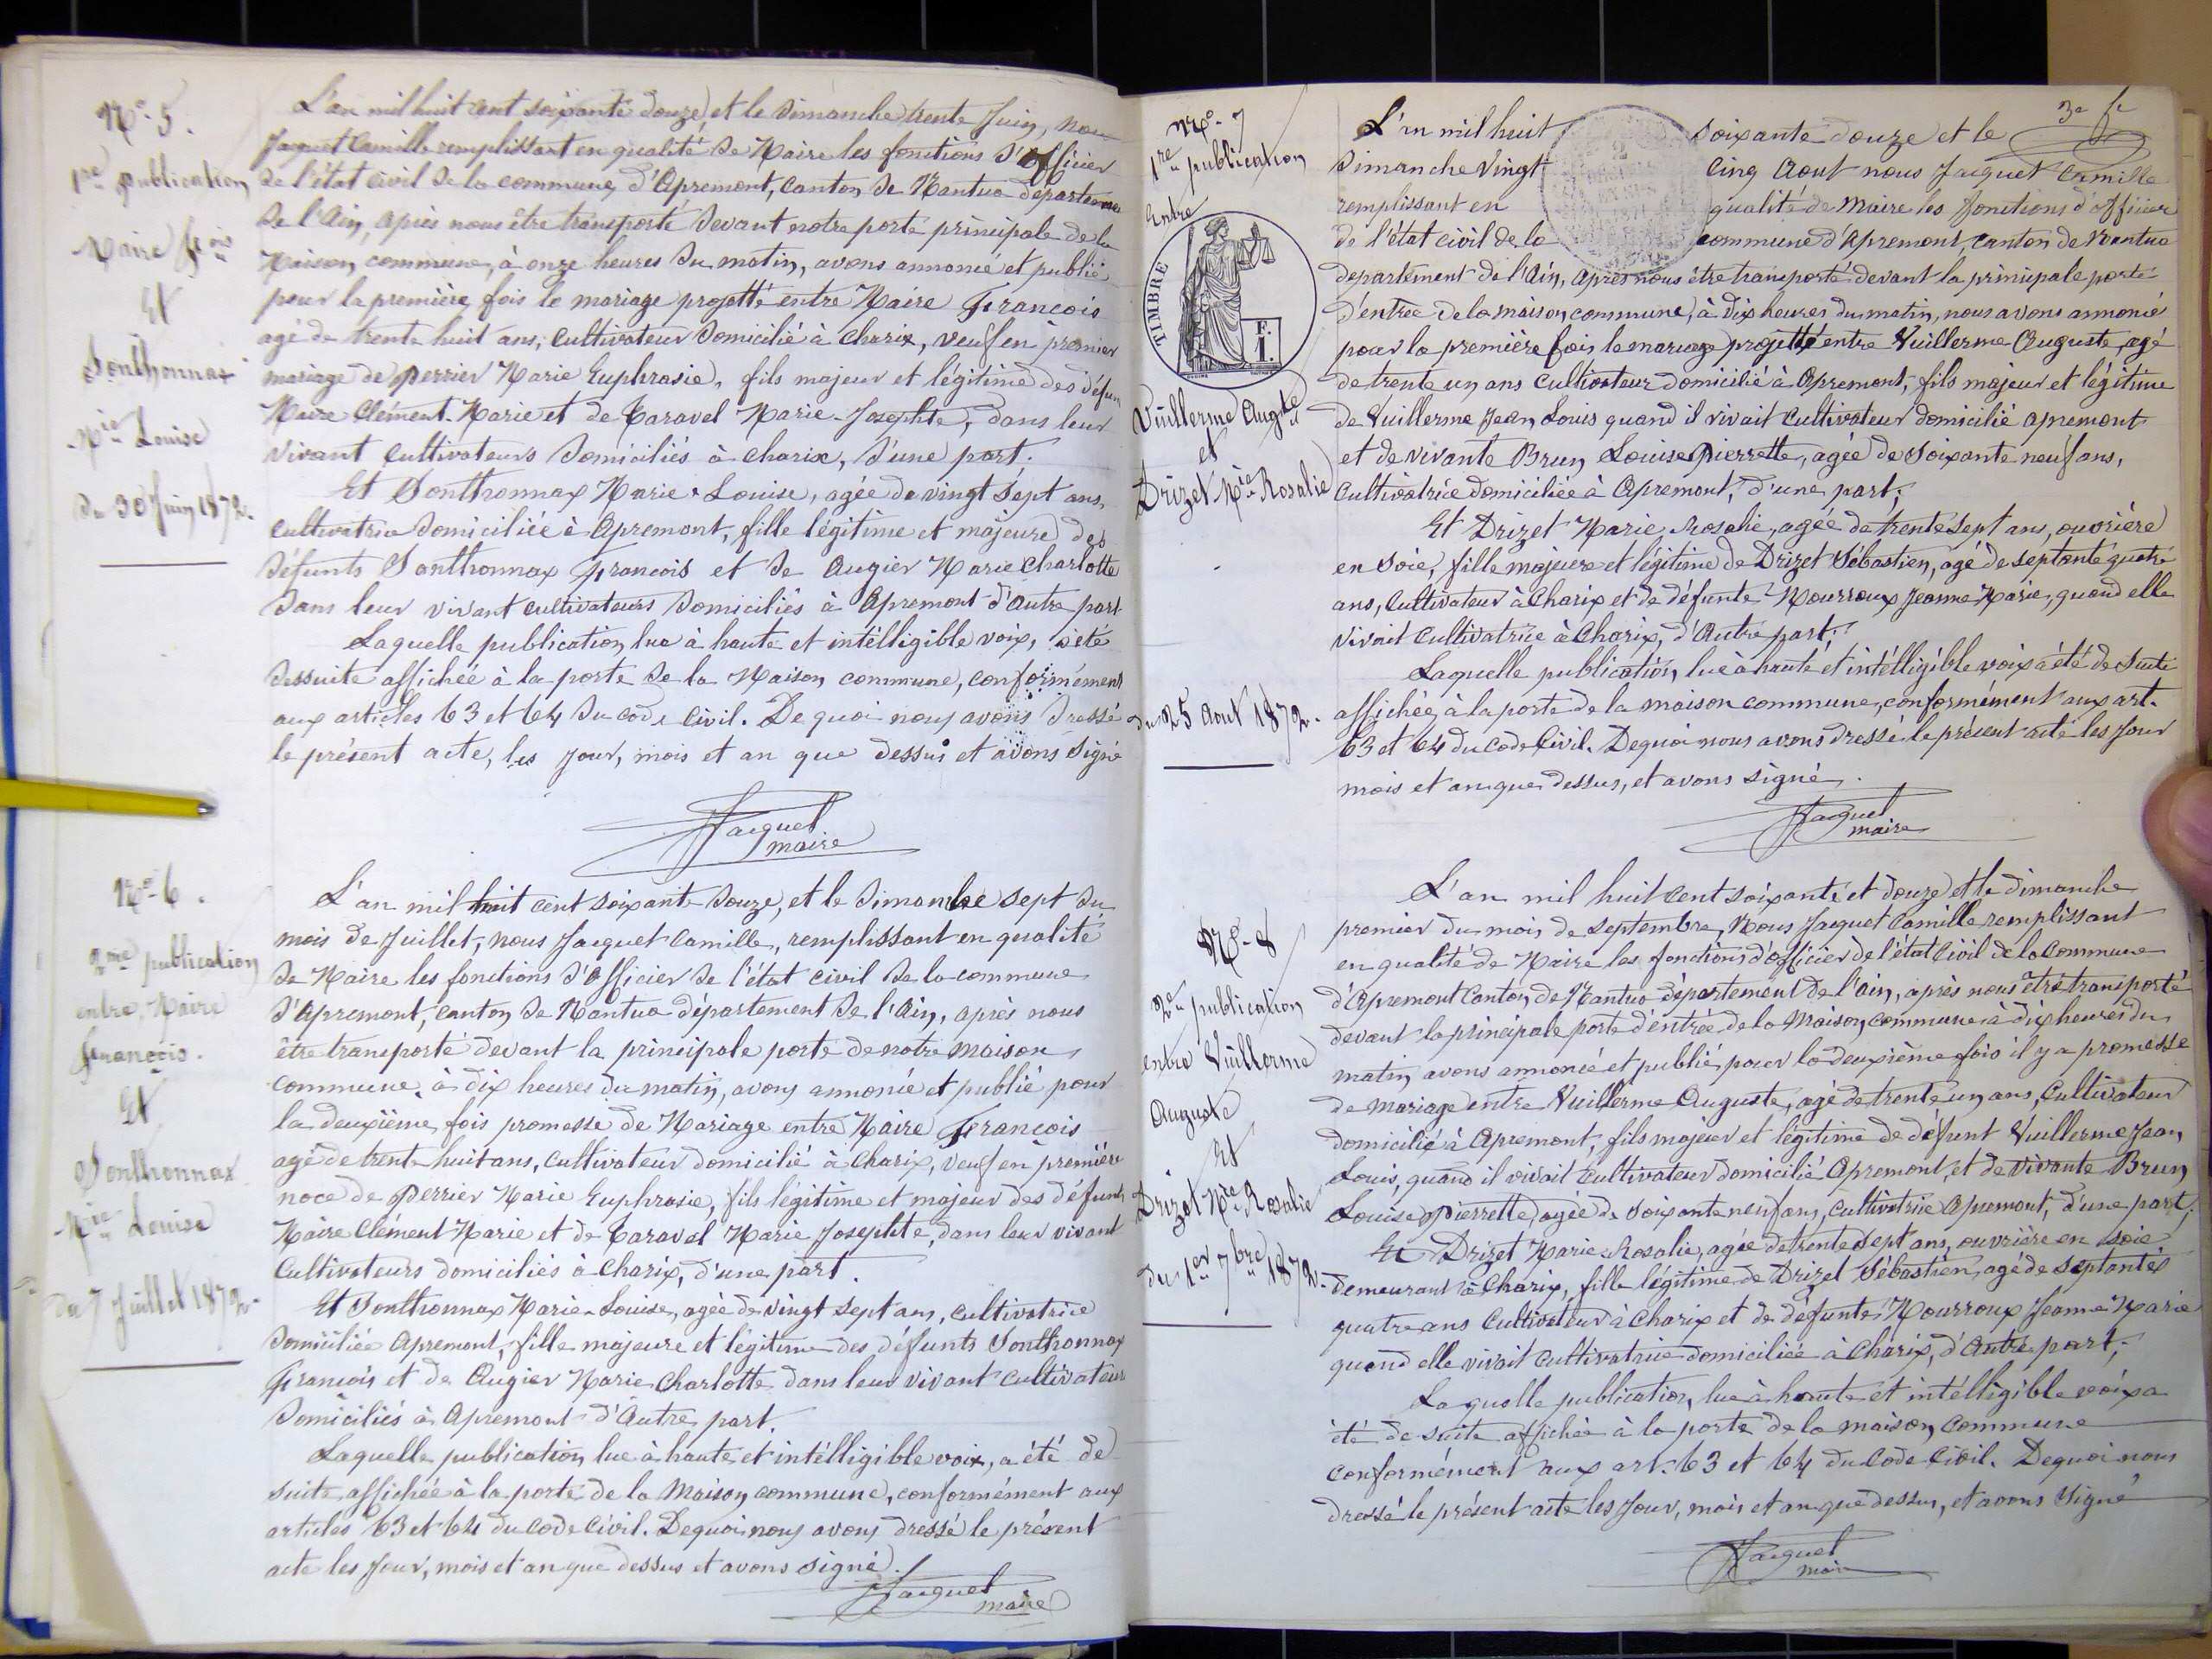 N°- 5.
1re publication
Maire fcois
Et
Sonthonnax
Mie Louise
Du 30 Juin 1872.
L'an mil huit cent soixante douze et le Dimanche trente Juin, nous
Jaquet Camille remplissant en qualité de Maire les fonctions d'officier
de l'état civil de la commune d'Apremont, Canton de Nantua departement
de l'Ain, après nous être transporté devant notre porte principale de la
Maison commune, à onze heures du matin, avons annoncé et publié
pour la première fois le mariage projetté entre Maire François
agé de trente huit ans, Cultivateur domicilié à Charix, veuf en premier
mariage de Perrier Marie Euphrasie, fils majeur et légitime des défunts
Maire Clément Marie et de Caravel Marie-Josephte, dans leur
vivant Cultivateurs domiciliés à Charix, d'une part.
Et Sonthonnax Marie-Louise, agée de vingt sept ans,
cultivatrice domiciliée à Apremont, fille légitime et majeure des
défunts Sonthonnax François et de Augier Marie Charlotte
dans leur vivant cultivateurs domiciliés à Apremont d'Autre part
Laquelle publication lue à haute et intélligible voix, a été
dessuite affichée à la porte de la Maison commune, conformément
aux articles 63 et 64 du code civil. De quoi nous avons dressé
le présent acte, les jour, mois et an que dessus et avons signé
Jaquet
maire
N°- 6.
2me publication
entre Maire
françois.
Et
Sonthonnax
Mie Louise
du 7 Juillet 1872.
L'an mil huit cent soixante douze, et le Dimanche sept du
mois de Juillet, nous Jaquet Camille, remplissant en qualité
de Maire les fonctions d'officier de l'état civil de la commune
d'Apremont, canton de Nantua département de l'Ain, après nous
être transporté devant la principale porte de notre maison
commune à dix heures du matin, avons annoncé et publié pour
la deuxième fois promesse de Mariage entre Maire François
agé de trente huit ans, cultivateur domicilié à Charix, veuf en première
noce de Perrier Marie Euphrasie, fils légitime et majeur des défunts
Maire Clément Marie et de Caravel Marie Josephte, dans leur vivant
Cultivateurs domiciliés à Charix, d'une part.
Et Sonthonnax Marie-Louise, agée de vingt sept ans, cultivatrice
domiciliée Apremont, fille majeure et légitime des défunts Sonthonnax
François et de Augier Marie Charlotte dans leur vivant cultivateurs
domiciliés à Apremont d'Autre part.
Laquelle publication lue à haute et intélligible voix, a été de
suite affichée à la porte de la Maison commune, conformément aux
articles 63 et 64 du code civil. De quoi nous avons dressé le présent
acte les jour, mois et an que dessus et avons signé.
Jaquet
maire
3e fe
N°- 7
1re publication
Entre
TIMBRE
F.
1.
Vuillerme Augte
et
Drizet Mie Rosalie
du 25 Aout 1872.
L'an mil huit soixante douze et le
dimanche vingt cinq Aout nous Jaquet Camille
remplissant en qualité de Maire les fonctions d'officier
de l'état civil de la commune d'Apremont, canton de Nantua
departement de l'Ain, après nous être transporté devant la principale porte
d'entrée de la maison commune, à dix heures du matin, nous avons annoncé
pour la première fois le mariage projetté entre Vuillerme Auguste, agé
de trente un ans Cultivateur domicilié à Apremont, fils majeur et légitime
de Vuillerme Jean Louis quand il vivait Cultivateur domicilié apremont
et de vivante Brun Louise Pierrette, agée de soixante neuf ans,
Cultivatrice domiciliée à Apremont, d'une part;
Et Drizet Marie Rosalie, agée de trente sept ans, ouvrière
en soie, fille majeure et légitime de Drizet Sébastien, agé de septante quatre
ans, Cultivateur à Charix et de défunte Mourroux Jeanne Marie, quand elle
vivait Cultivatrice à Charix, d'Autre part;
Laquelle publication, lue à haute et intélligible voix a été de suite
affichée à la porte de la maison commune, conformément aux art.
63 et 64 du Code Civil. De quoi nous avons dressé le présent acte les jour
mois et an que dessus, et avons signé.
Jaquet
maire
N°- 8
2e publication
entre Vuillerme
Auguste
Et
Drizet Mie Rosalie
du 1er 7bre 1872.
L'an mil huit cent soixante et douze et le dimanche
premier du mois de Septembre, Nous Jaquet Camille remplissant
en qualité de Maire les fonctions d'officier de l'état civil de la Commune
d'Apremont Canton de Nantua département de l'ain, après nous être transporté
devant la principale porte d'entrée de la Maison commune à dix heures du
matin avons annoncé et publié pour la deuxième fois il y a promesse
de mariage entre Vuillerme Auguste, agé de trente un ans, Cultivateur
domicilié à Apremont, fils majeur et légitime de défunt Vuillerme Jean
Louis, quand il vivait Cultivateur domicilié Apremont, et de vivante Brun
Louise Pierrette, agée de soixante neuf ans, Cultivatrice Apremont, d'une part;
Et Drizet Marie Rosalie, agée de trente sept ans, ouvrière en soie
demeurant à Charix, fille légitime de Drizet Sébastien, agé de septante
quatre ans Cultivateur à Charix et de défunte Mourroux Jeanne Marie
quand elle vivait Cultivatrice domiciliée à Charix, d'Autre part;
Laquelle publication, lue à haute et intélligible voix a
été de suite affichée à la porte de la maison commune
conformément aux art. 63 et 64 du Code Civil. De quoi nous
dressé le présent acte les jour, mois et an que dessus, et avons signé
Jaquet
maire